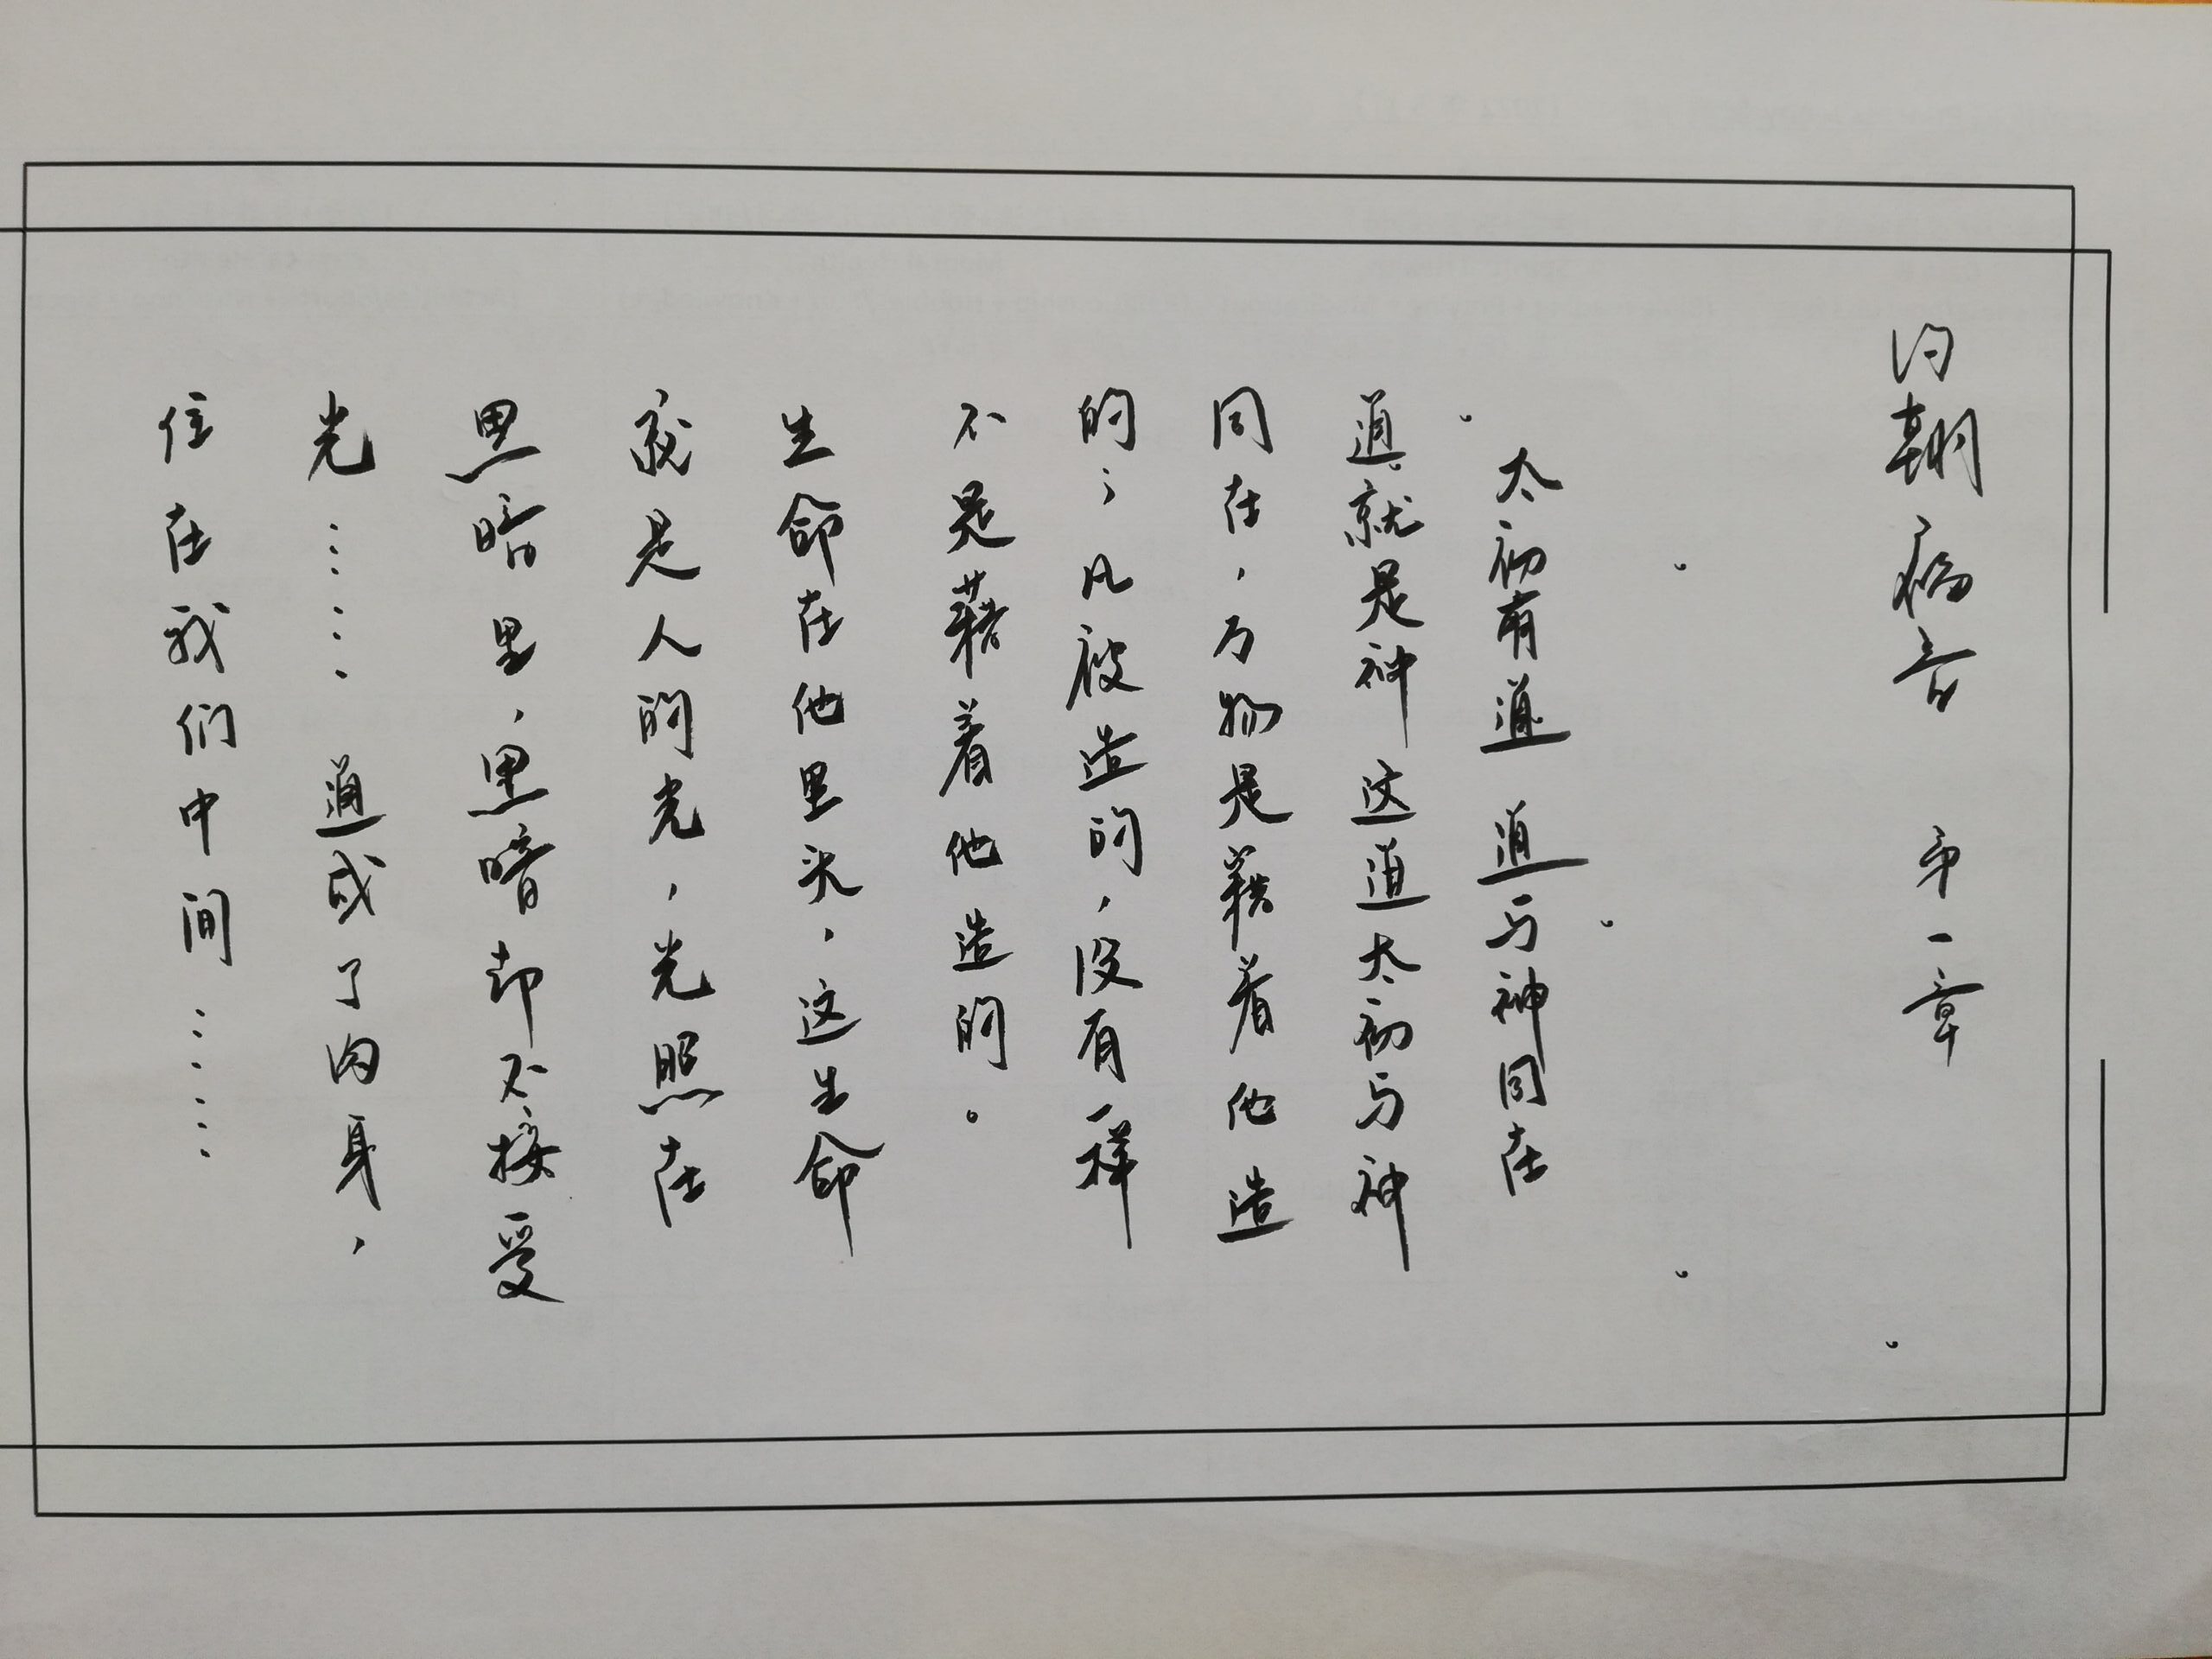 约翰福音 第一章
太初有道 道与神同在
道就是神 这道太初与神
同在，万物是藉着他造
的；凡被造的，没有一样
不是藉着他造的。
生命在他里头，这生命
就是人的光，光照在
黑暗里，黑暗却不接受
光…… 道成了肉身，
住在我们中间……